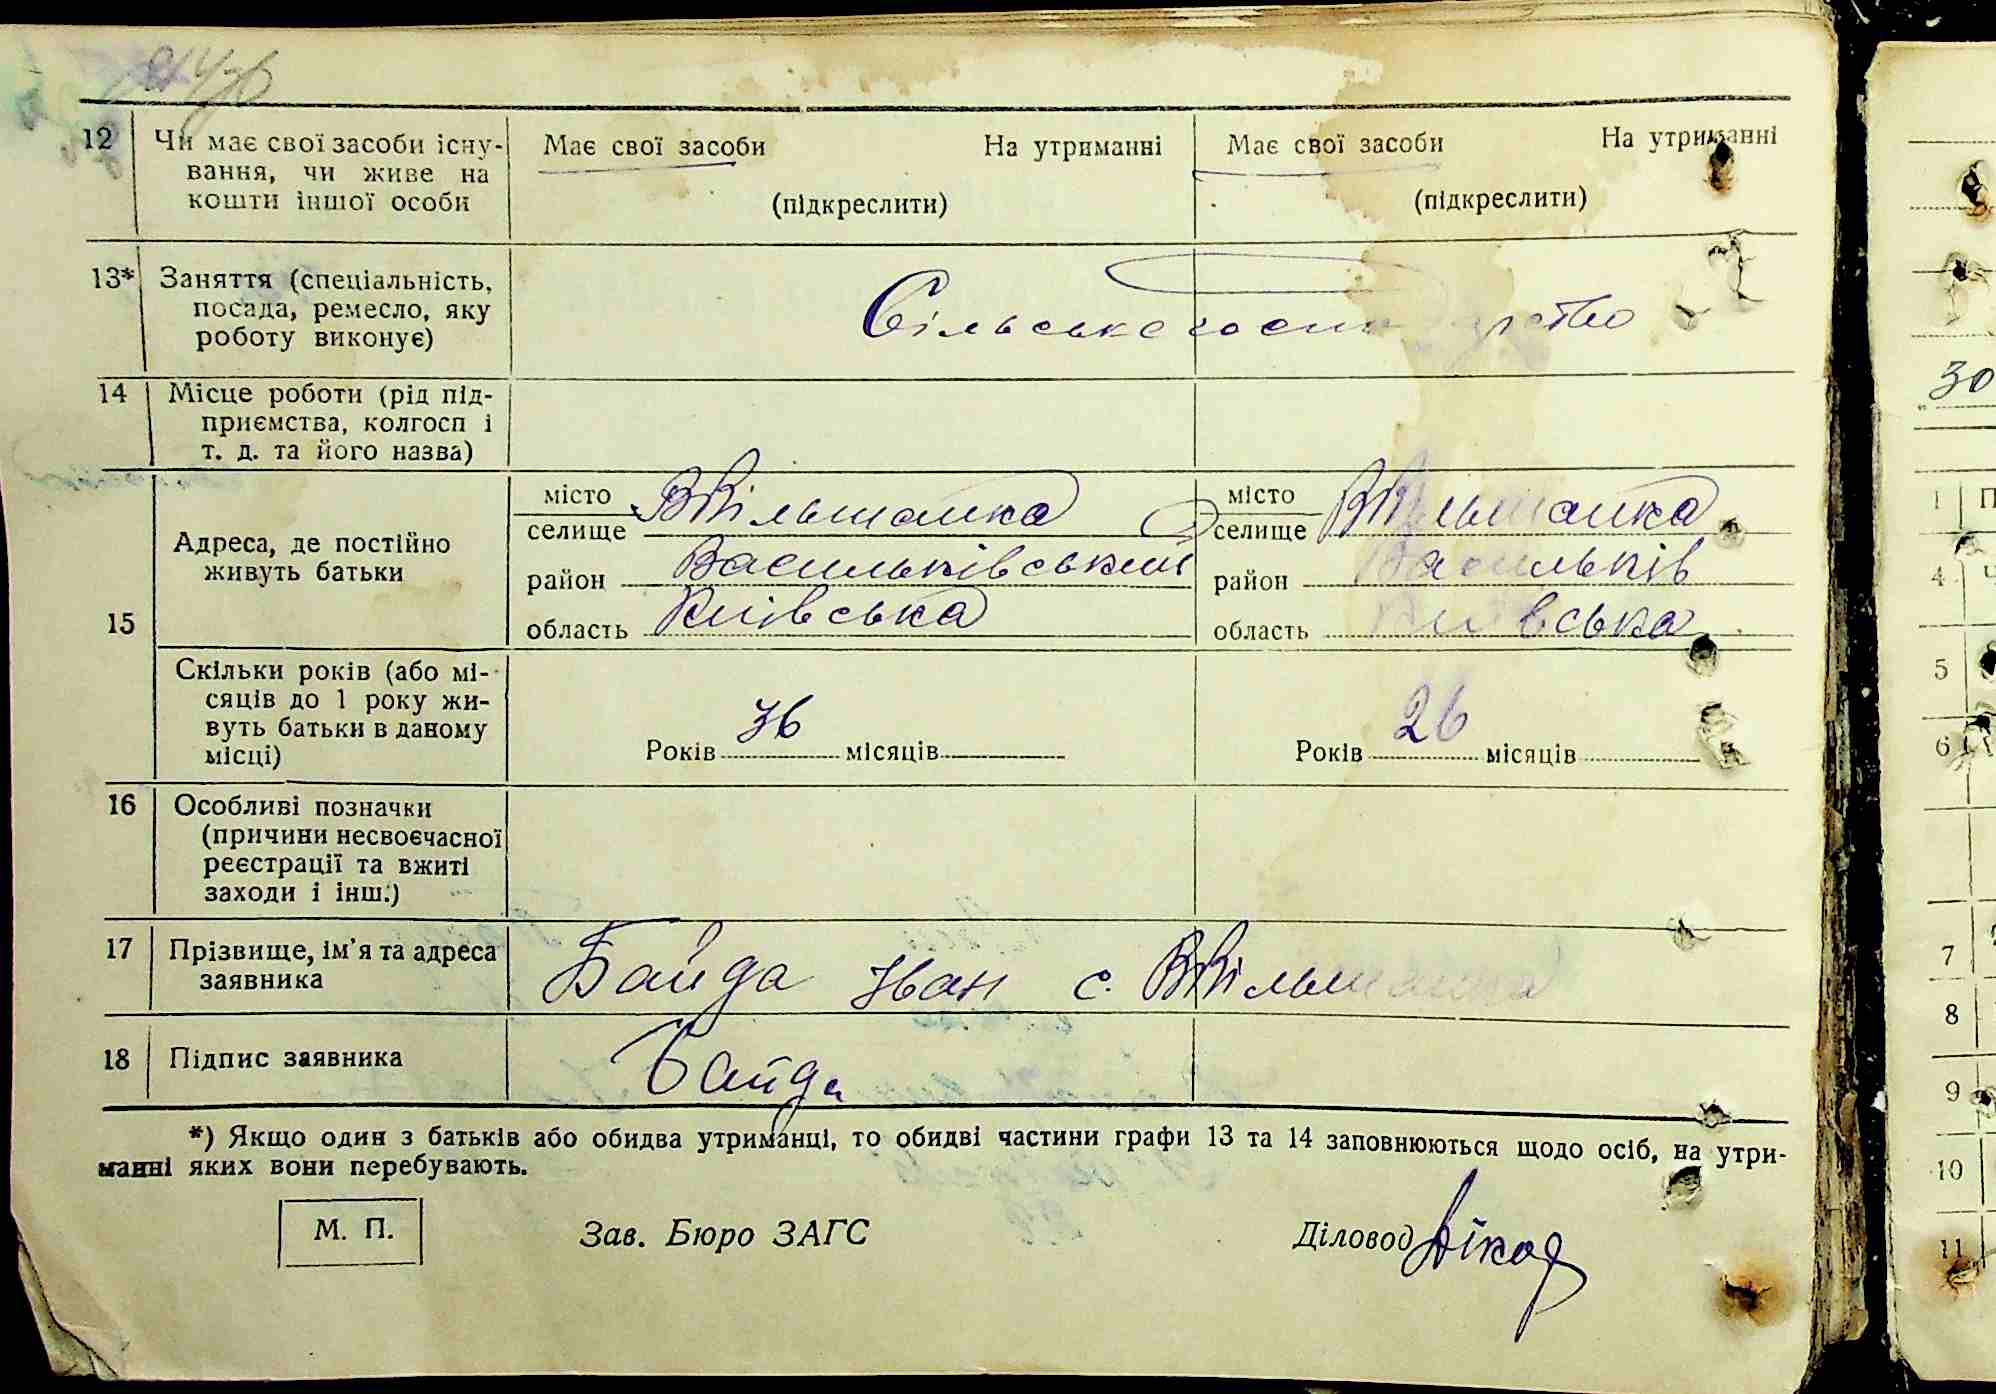 12 Чи має свої засоби існу- Має свої засоби На утриманні Має свої засоби На утриманні
вання, чи живе на
кошти іншої особи (підкреслити) (підкреслити)
13* Заняття (спеціальність,
посада, ремесло, яку Сільське господарство
роботу виконує)
14 Місце роботи (рід під-
приємства, колгосп і
т. д. та його назва)
місто ВВільшанка місто ВВільшанка
Адреса, де постійно селище селище
живуть батьки район Васильківський район Васильків
15 область Київська область Київська
Скільки років (або мі-
сяців до 1 року жи-
вуть батьки в даному Років 36 місяців Років 26 місяців
місці)
16 Особливі позначки
(причини несвоєчасної
реєстрації та вжиті
заходи і інш.)
17 Прізвище, ім'я та адреса Байда Іван с. ВВільшанка
заявника
18 Підпис заявника Байда
*) Якщо один з батьків або обидва утриманці, то обидві частини графи 13 та 14 заповнюються щодо осіб, на утри-
манні яких вони перебувають.
М. П. Зав. Бюро ЗАГС Діловод
30
1 П
4 Ч
5
6
7
8
9
10
11